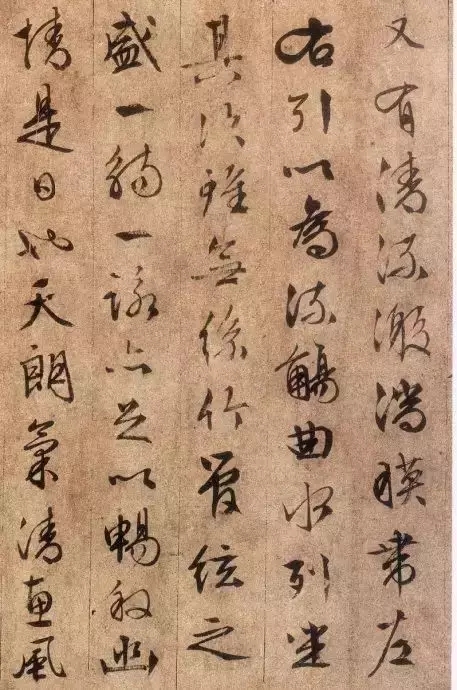 又有清流激湍暎帶左
右引以為流觴曲水列坐
其次雖無絲竹管弦之
盛一觴一詠亦足以暢敘幽
情是日也天朗氣清惠風